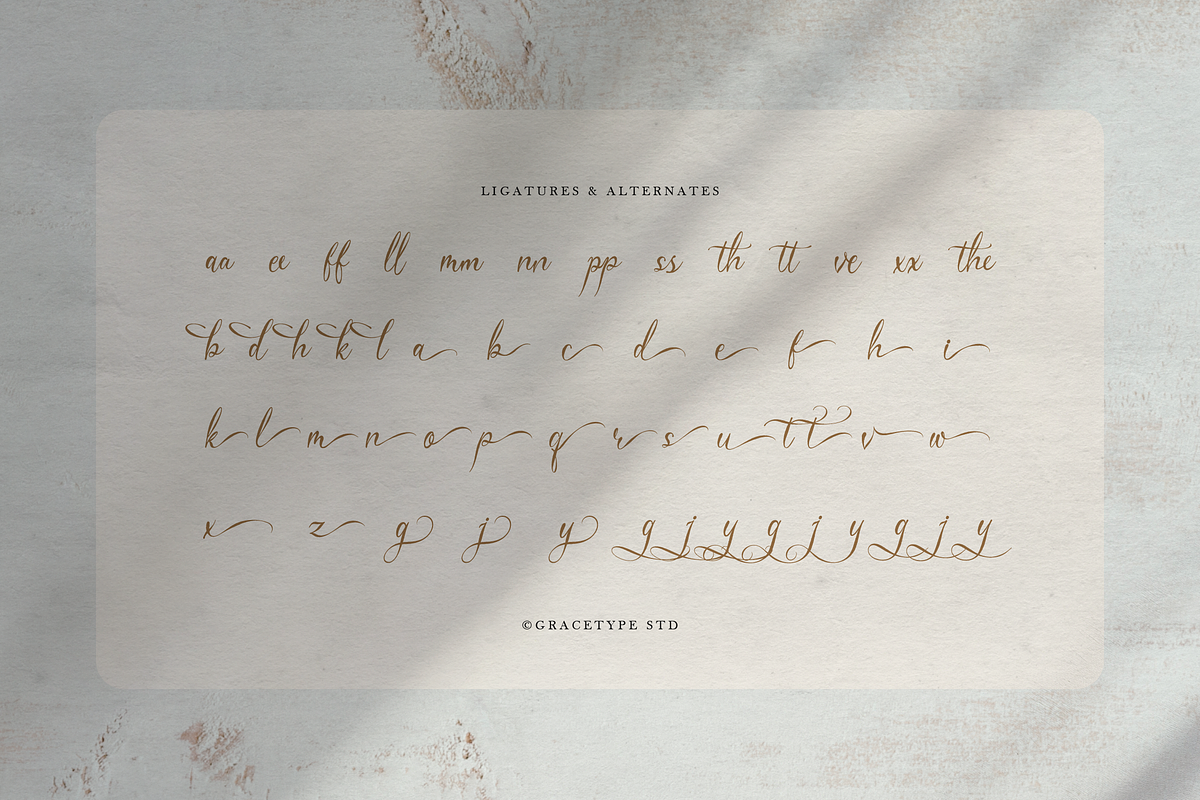 LIGATURES & ALTERNATES
aa ee ff ll mm nn pp ss th tt ve xx the
b d h k l a b c d e f h i
k l m n o p q r s u t t v w
x z g j y g j y g j y g j y
©GRACETYPE STD